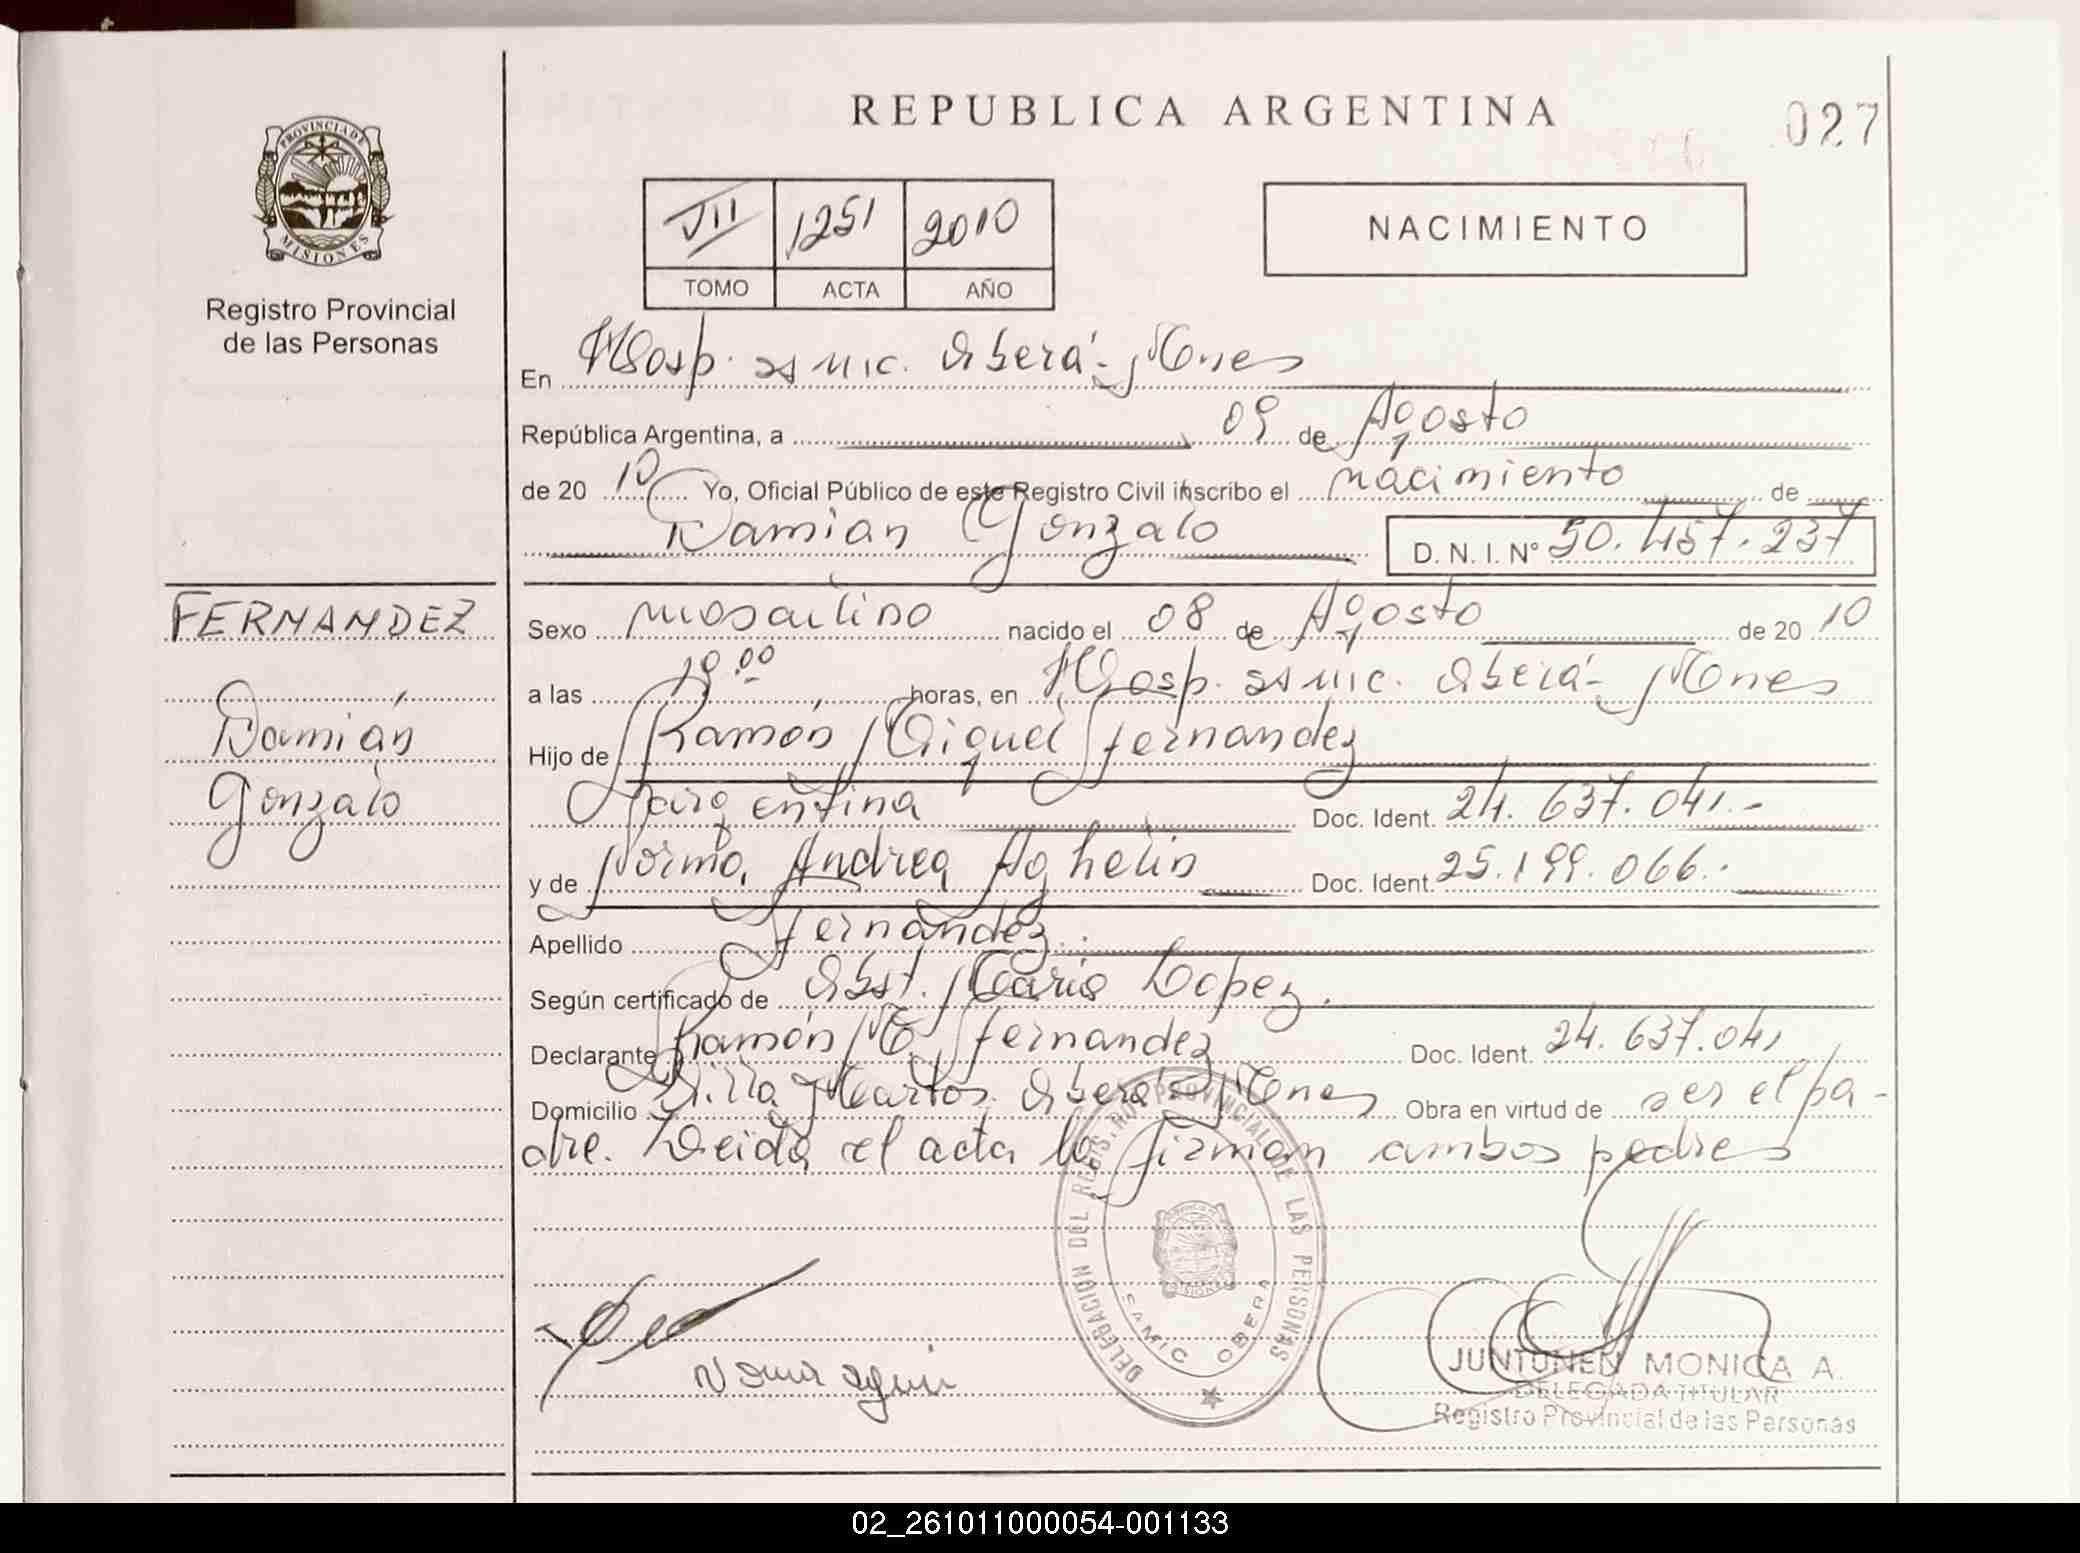 REPUBLICA ARGENTINA
027
PROVINCIA DE
MISIONES
Registro Provincial
de las Personas
VII 1251 2010
TOMO ACTA AÑO
NACIMIENTO
En Hosp. SAMIC. Oberá - Mnes
República Argentina, a 09 de Agosto
de 20 10 Yo, Oficial Público de este Registro Civil inscribo el nacimiento de
Damián Gonzalo D. N. I. Nº 50.457.237
FERNANDEZ
Damián
Gonzalo
Sexo masculino nacido el 08 de Agosto de 20 10
a las horas, en Hosp. SAMIC. Oberá - Mnes
Hijo de Ramón Miguel Fernández
argentina Doc. Ident. 24.637.041.-
y de Norma Andrea Doc. Ident. 25.199.066.-
Apellido Fernández.
Según certificado de Obst. María Lopez.
Declarante Ramón M. Fernandez Doc. Ident. 24.637.041
Domicilio Villa Oberá - Mnes Obra en virtud de ser el pa-
dre. Leída el acta la firman ambos padres
DELEGACION DEL REGISTRO PROVINCIAL DE LAS PERSONAS
SAMIC OBERA
JUNTUNEN MONICA A.
DELEGADA TITULAR
Registro Provincial de las Personas
02_261011000054-001133